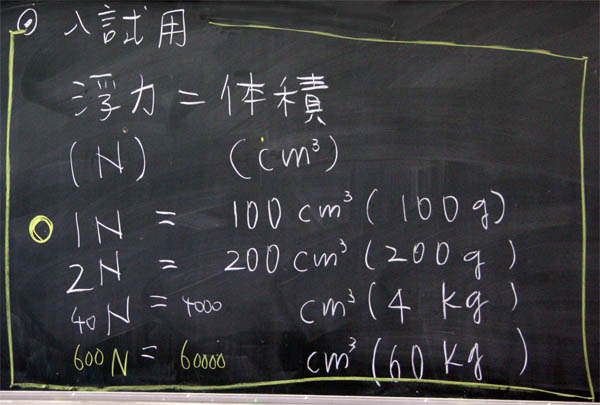 ⑥ 入試用
浮力 = 体積
(N) (cm³)
1N = 100 cm³ (100g)
2N = 200 cm³ (200g)
40N = 4000 cm³ (4 kg)
600N = 60000 cm³ (60 kg)